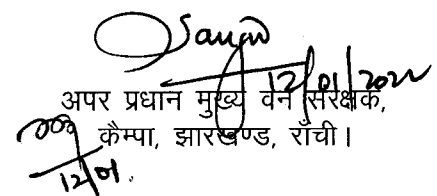 Sanjiv
12/01/2022
अपर प्रधान मुख्य वन संरक्षक,
कैम्पा, झारखण्ड, राँची।
12/01.